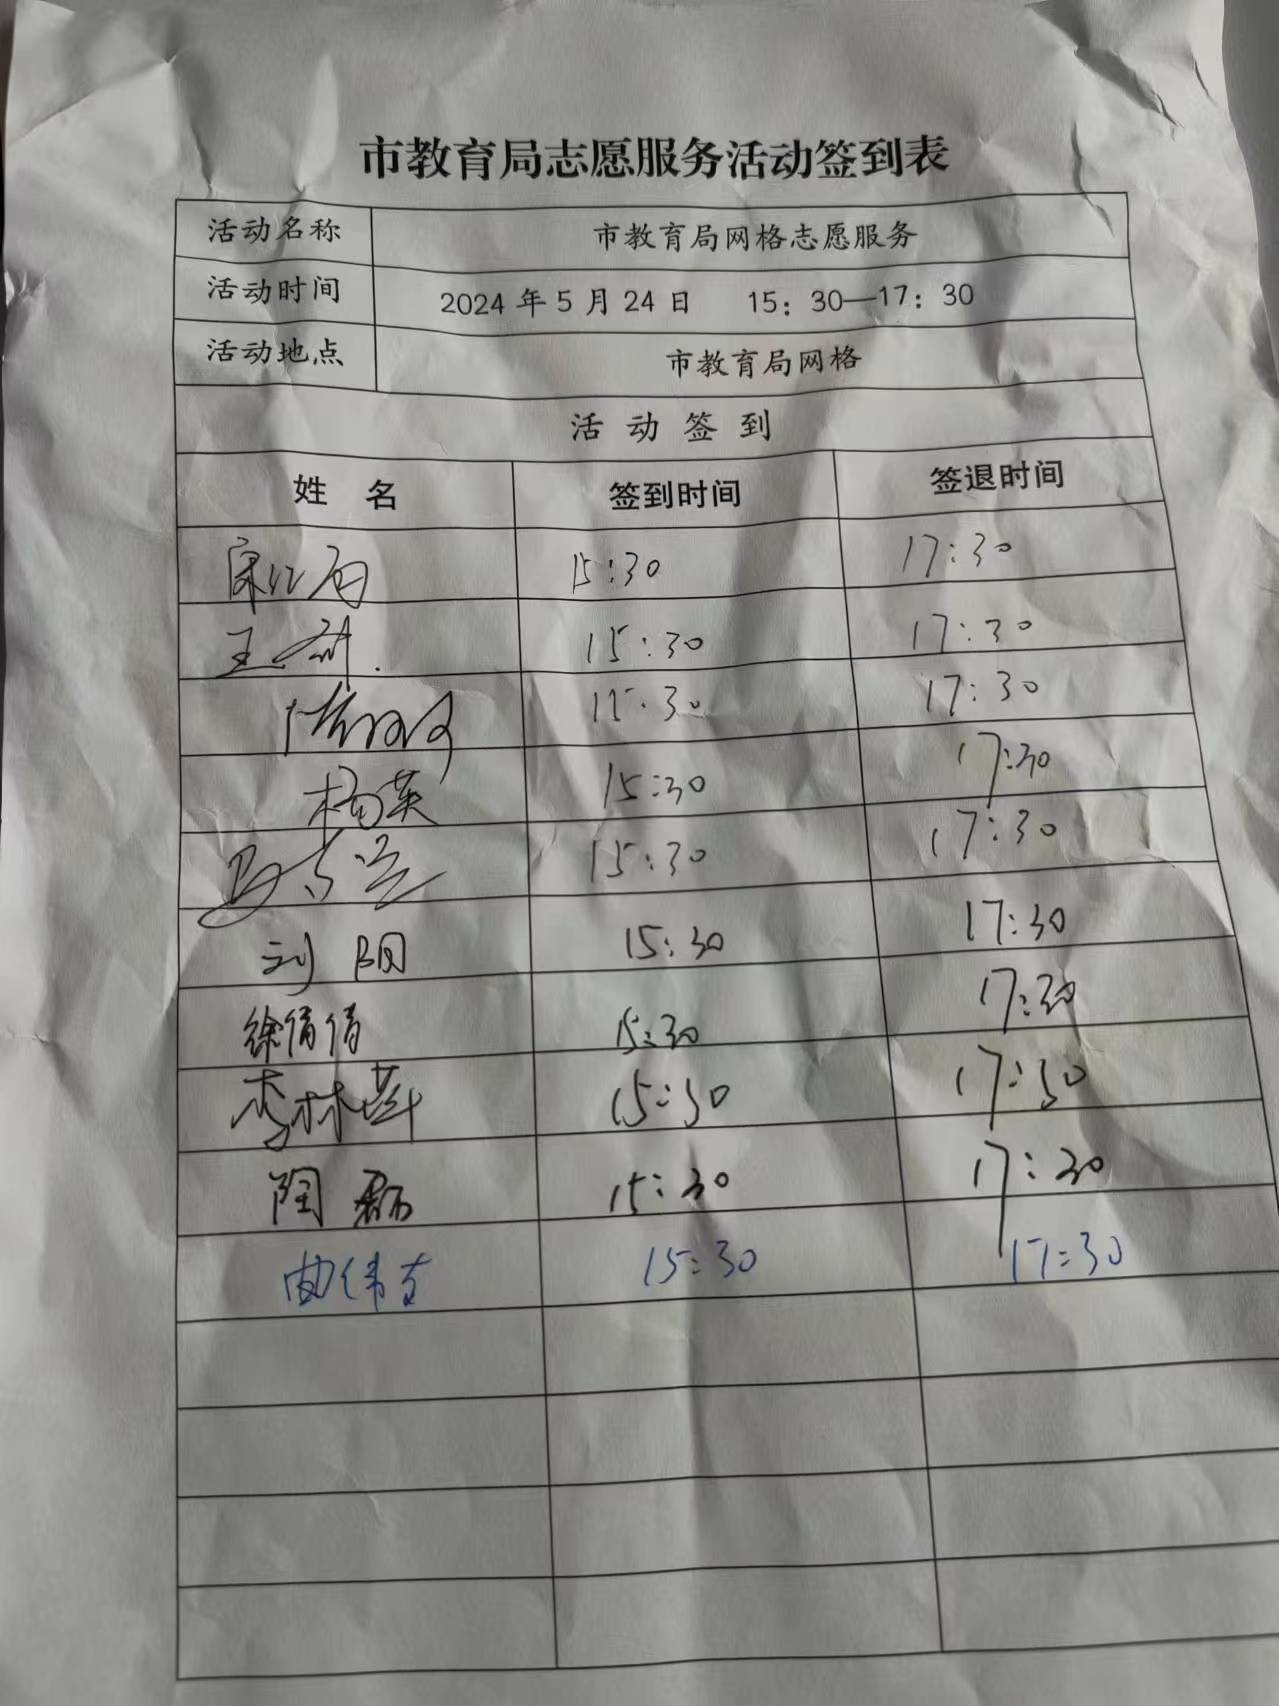 市教育局志愿服务活动签到表
活动名称 市教育局网格志愿服务
活动时间 2024年5月24日 15：30—17：30
活动地点 市教育局网格
活动签到
姓名 签到时间 签退时间
15:30 17:30
王 15:30 17:30
15:30 17:30
杨英 15:30 17:30
15:30 17:30
刘阳 15:30 17:30
徐倩倩 15:30 17:30
李林 15:30 17:30
陶磊 15:30 17:30
曲伟 15:30 17:30